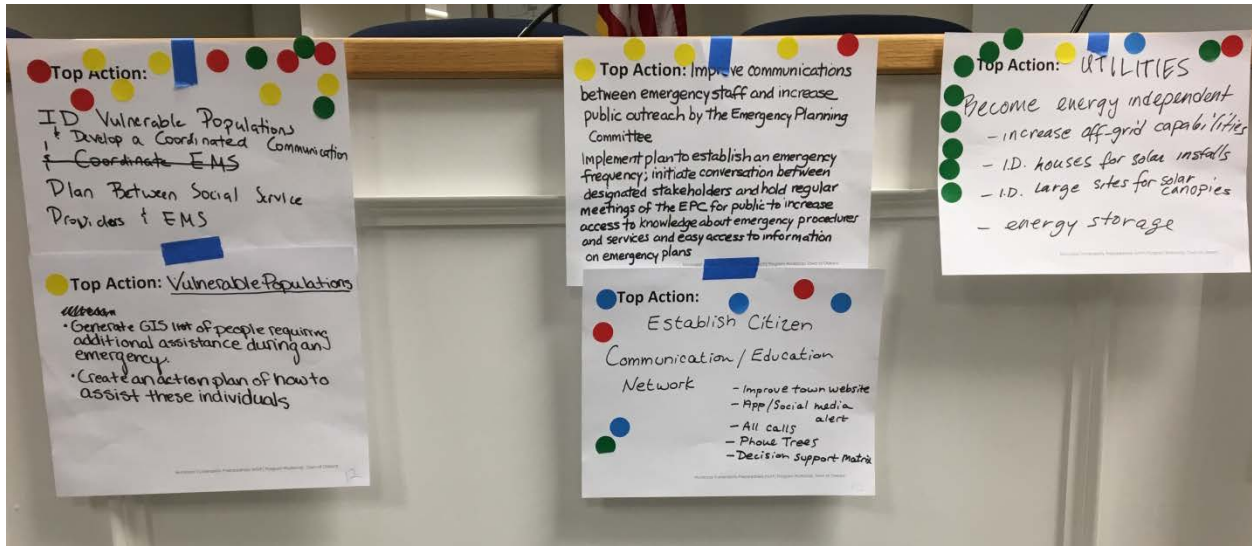 Top Action:
ID Vulnerable Populations
& Develop a Coordinated Communication
& Coordinate EMS
Plan Between Social Service
Providers & EMS
Top Action: Vulnerable Populations
• Generate GIS list of people requiring
additional assistance during an
emergency.
• Create an action plan of how to
assist these individuals
Top Action: Improve communications
between emergency staff and increase
public outreach by The Emergency Planning
Committee
Implement plan to establish an emergency
frequency; initiate conversation between
designated stakeholders and hold regular
meetings of the EPC for public to increase
access to knowledge about emergency procedures
and services and easy access to information
on emergency plans
Top Action:
Establish Citizen
Communication / Education
Network
- Improve town website
- App/Social media
alert
- All calls
- Phone Trees
- Decision Support Matrix
Top Action: UTILITIES
Become energy independent
- increase off-grid capabilities
- I.D. houses for solar installs
- I.D. Large sites for solar
canopies
- energy storage